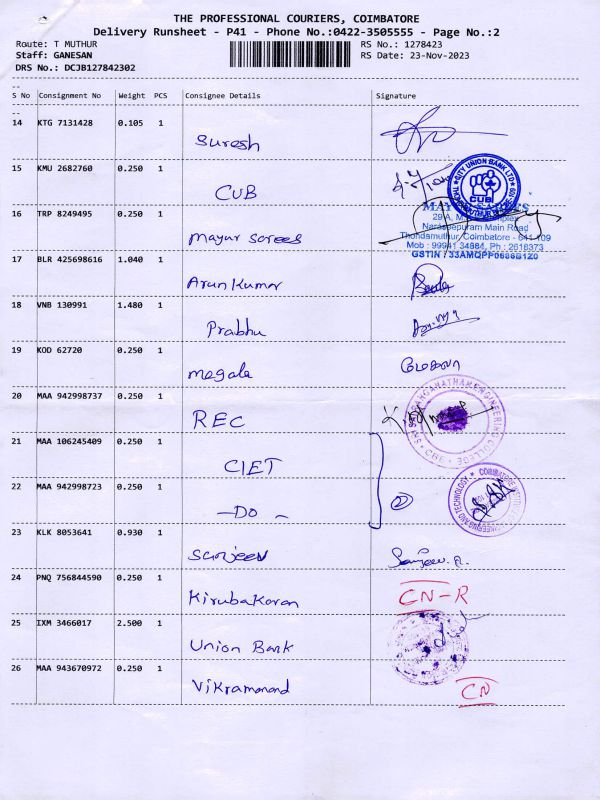 THE PROFESSIONAL COURIERS, COIMBATORE
Delivery Runsheet - P41 - Phone No.:0422-3505555 - Page No.:2
Route: T MUTHUR RS No.: 1278423
Staff: GANESAN RS Date: 23-Nov-2023
DRS No.: DCJB127842302
S No Consignment No Weight PCS Consignee Details Signature
14 KTG 7131428 0.105 1 Suresh
15 KMU 2682760 0.250 1 CUB
CITY UNION BANK LTD
CUB
16 TRP 8249495 0.250 1 Mayur Sarees
29 A,
Narasepuram Main Road
Thondamuthur, Coimbatore - 641 109
Mob : 99941 34884, Ph : 2618373
GSTIN / 33AMQPP0686B1Z0
17 BLR 425698616 1.040 1 ArunKumar
18 VNB 130991 1.480 1 Prabhu
19 KOD 62720 0.250 1 megala மேகலா
20 MAA 942998737 0.250 1 REC
ENGINEERING COLLEGE
CBE
21 MAA 106245409 0.250 1 CIET
22 MAA 942998723 0.250 1 -DO- 2
23 KLK 8053641 0.930 1 Sanjeev Sanjeev. R.
24 PNQ 756844590 0.250 1 Kirubakaran CN-R
25 IXM 3466017 2.500 1 Union Bank
26 MAA 943670972 0.250 1 Vikramanand CN